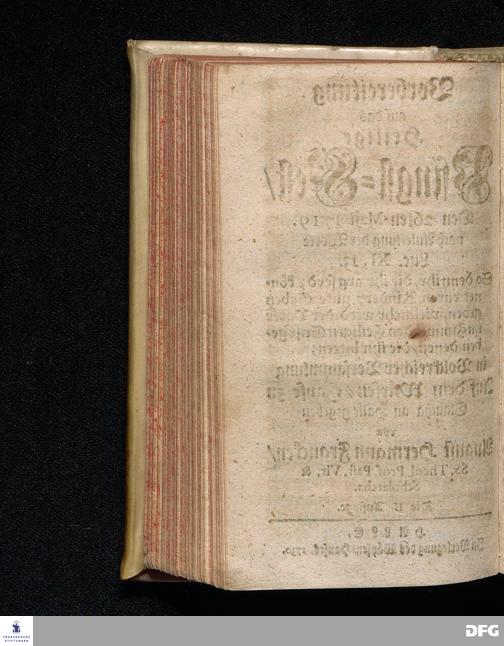 Vorbereitung
auf das
Heilige
Pfingst=Fest/
Den 26sten May 1719.
nach Anleitung der Worte
Luc. XI, 13.
So denn ihr, die ihr arg seyd, kön-
net euren Kindern gute Gaben
geben, vielmehr wird der Vater
im Himmel den Heiligen Geist ge-
ben denen, die ihn bitten:
in Volckreicher Versammlung
Auf dem Waysen-Hause zu
Glaucha an Halle gegeben
von
August Hermann Francken/
SS. Theol. Prof. Past. Vlr. &
Scholarcha.
Die II. Auflage.
HALLE,
In Verlegung des Wäysen-Hauses, 1730.
FRANCKESCHE
STIFTUNGEN
DFG